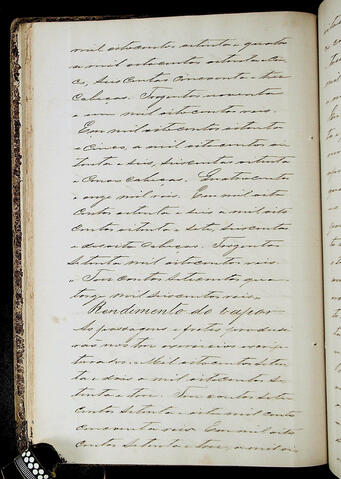 mil oitocentos oitenta e quatro
a mil oitocentos oitenta e cin
co, seis centos cincoenta e tres
Cabeças. Trezentos noventa
e um mil oitocentos reis.
Em mil oitocentos oitenta
e cinco, a mil oitocentos oi
tenta e seis, seiscentos oitenta
e Cabeças. Quatrocentos
e onze mil reis. Em mil oito
centos oitenta e seis a mil oito
centos oitenta e sete, seiscentos
e dezoito Cabeças. Trezentos
setenta mil oitocentos reis.
Tres contos setecentos qua
torze mil seiscentos reis.
Rendimento do vapor
As passagens e fretes produzi
rão nos tres exercicios escrip
turados: Mil oitocentos seten
ta e dois a mil oitocentos se
tenta e tres. Tres contos sete
centos setenta e oito mil cento
cincoenta reis. Em mil oito
centos setenta e tres, a mil oi